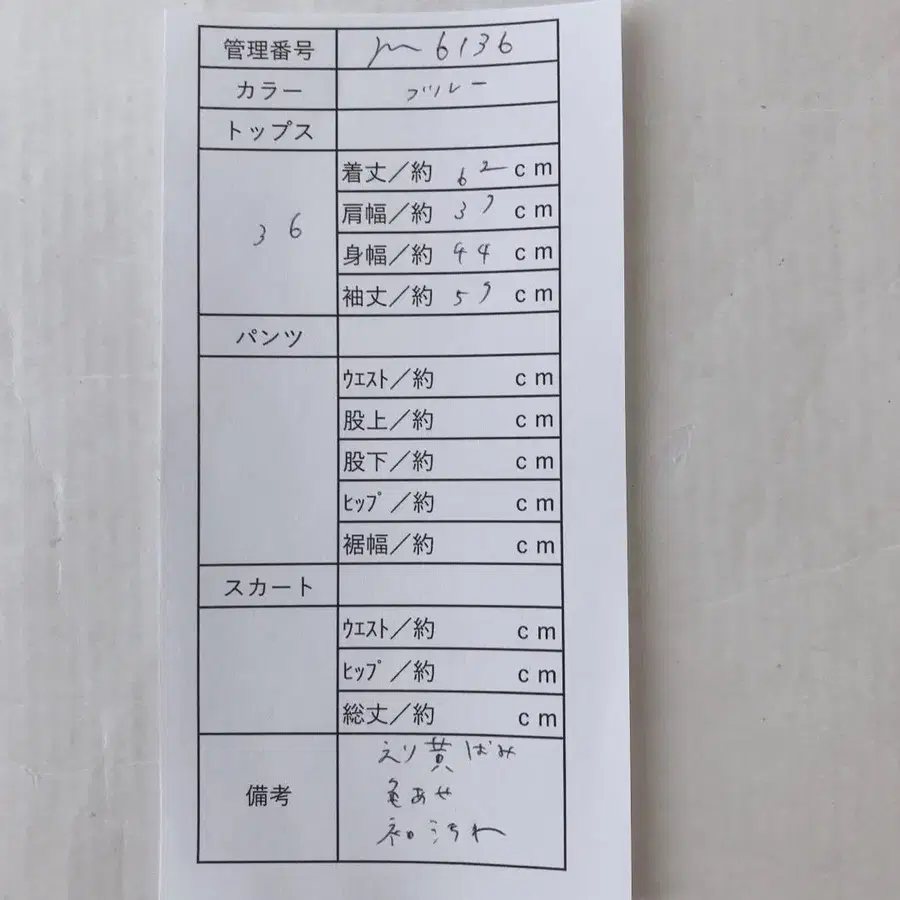 管理番号 m 6136
カラー ブルー
トップス
36
着丈／約 62 cm
肩幅／約 37 cm
身幅／約 44 cm
袖丈／約 57 cm
パンツ
ｳｴｽﾄ／約 cm
股上／約 cm
股下／約 cm
ﾋｯﾌﾟ／約 cm
裾幅／約 cm
スカート
ｳｴｽﾄ／約 cm
ﾋｯﾌﾟ／約 cm
総丈／約 cm
備考
えり黄ばみ
色あせ
袖汚れ